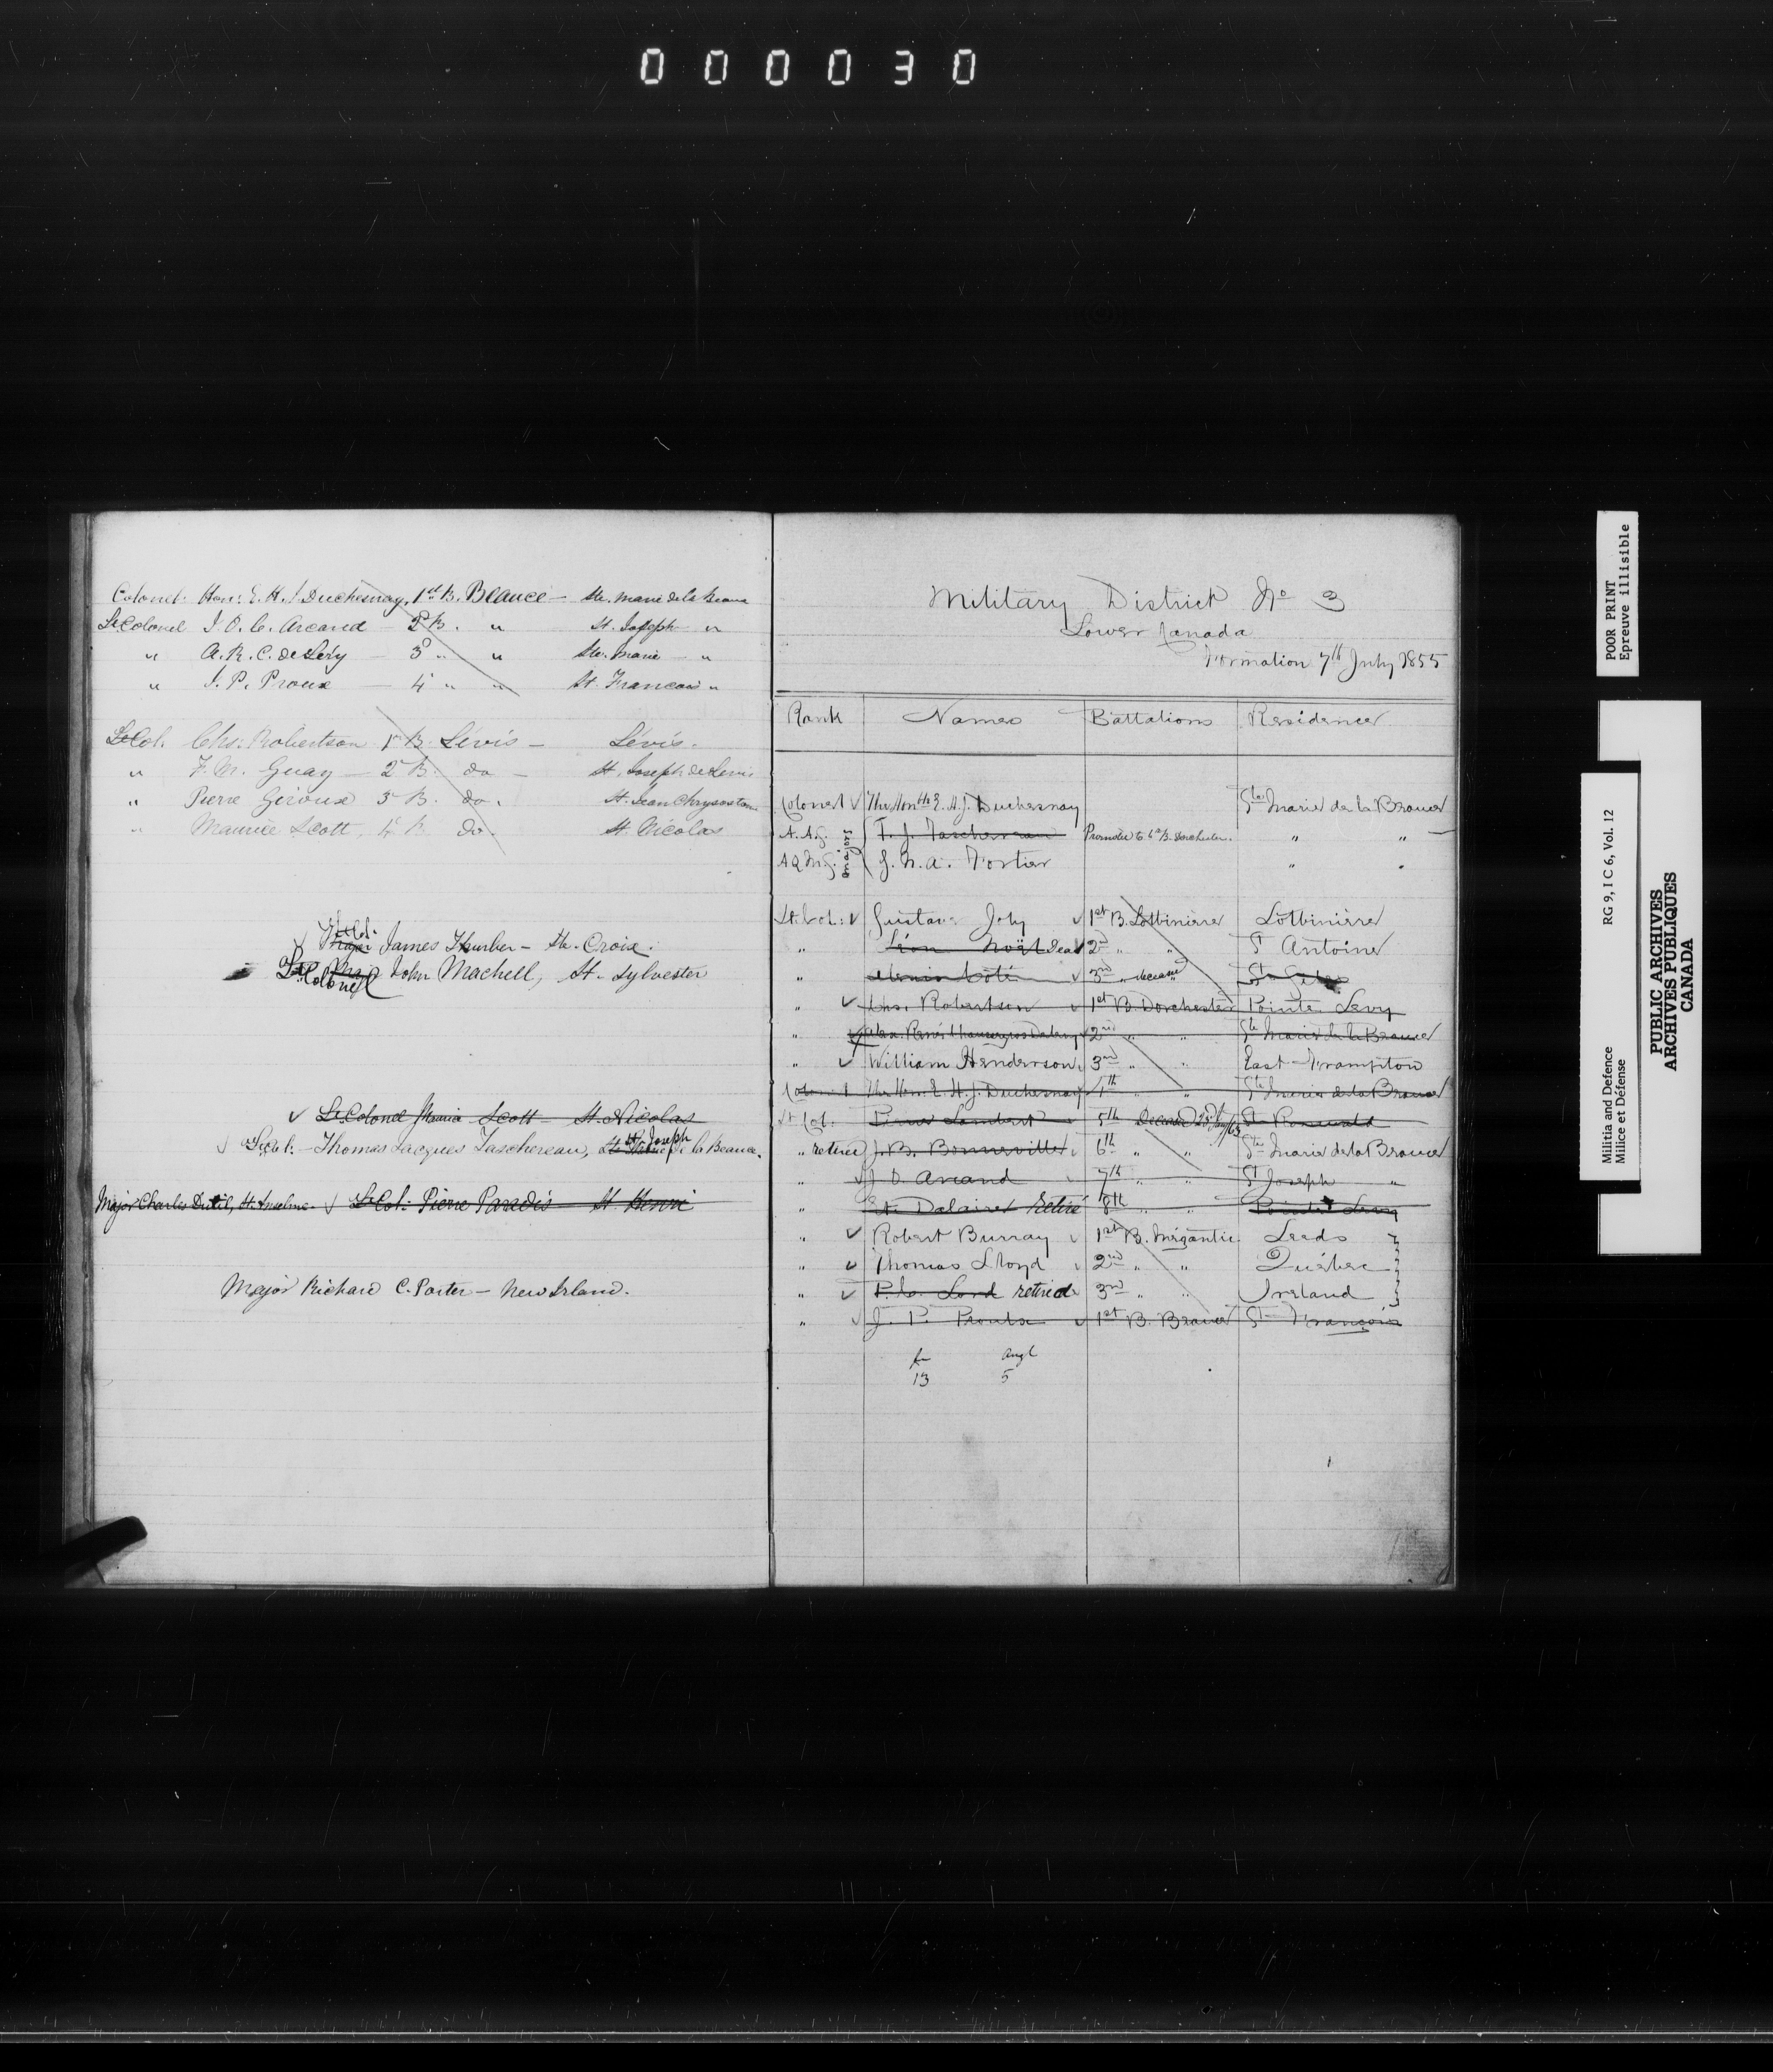 000030
Colonel. Hon: E. H. J. Duchesnay, 1st B. Beauce — Ste. Marie de la Beauce
Lt Colonel J. O. C. Arcand — 2d B. " St. Joseph "
" A. R. C. de Léry — 3d " " Ste. Marie — "
" J. P. Proux — 4 " " St. Francois "
Lt Col. Chs. Robertson 1st B. Lévis — Lévis.
" F. M. Guay — 2d B. do — St. Joseph de Levis
" Pierre Giroux 3d B. do. St. Jean Chrysostom
" Maurice Scott, 4 B. do. St. Nicolas
Lt Col.
Major James Thurber — Ste. Croix.
Lt. Colonel Major John Machell, St. Sylvester
Lt Colonel Maurice Scott — St. Nicolas
Lt Col. — Thomas Jacques Taschereau, St. Joseph de la Beauce.
Major Charles Dutil, St. Anselme. Lt Col. Pierre Paradis St. Henri
Major Richard C. Porter — New Irland.
Military District No 3
Lower Canada
Formation 7th July 1855
Rank Names Battalions Residence
Colonel The Honble E. H. J. Duchesnay Ste Marie de la Beauce
A. A. G. T. J. Taschereau Promoted to 6th B. Dorchester. " "
Majors
A Q M G. J. N. A. Fortier " "
Lt. Col: Gustave Joly 1st B. Lotbinière Lotbinière
" Léon Noël dead 2nd " " St Antoine
" Côté 3rd " deceased St Giles
" Chs. Robertson 1st B. Dorchester Pointe Levy
" Alex. René Chaussegros Delery 2nd " " Ste Marie de la Beauce
" William Henderson 3rd " " East Frampton
Colonel The Hon. E. H. J. Duchesnay 4th " " Ste Marie de la Beauce
Lt Col. Pierre Lambert 5th Deceased St Romuald
" retired J. B. Bonneville 6th " " Ste Marie de la Beauce
" J. O. Arcand 7th " " St Joseph "
" Et. Dalaire Retiré 8th " " Pointe Levy
" Robert Burray 1st B. Mégantic Leeds
" Thomas Lloyd 2nd " " Québec
" P. C. Lord retired 3rd " " Ireland
" J. P. Proulx 1st B. Beauce St François
fr Angl
13 5
POOR PRINT
Epreuve illisible
RG 9, I C 6, Vol. 12
Militia and Defence
Milice et Défense
PUBLIC ARCHIVES
ARCHIVES PUBLIQUES
CANADA